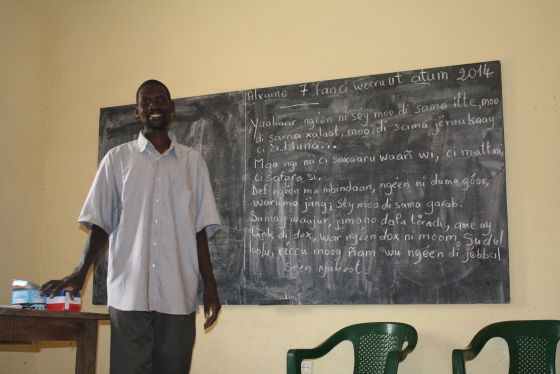 Alxame 7 fan ci weeru ut atum 2014
Yaakaar ngéen ni séy moo di sama itte, moo
di sama xalaat, moo di sama jëmukaay
ci àdduna...
Mga ngi nii ci saxaaru waañ wi, ci matt mi,
ci safara si.
Def ngéen ma mbindaan, ngéen ni duma góor,
waruma jàng; séy moo di sama garab.
Samay waajur, jamano dafa téradi, gne ay
tànk di dox, war ngéen dox ni moom. Su dul
loolu, reccu mooy ñam wu ngéen di jébbal
seen njaboot.